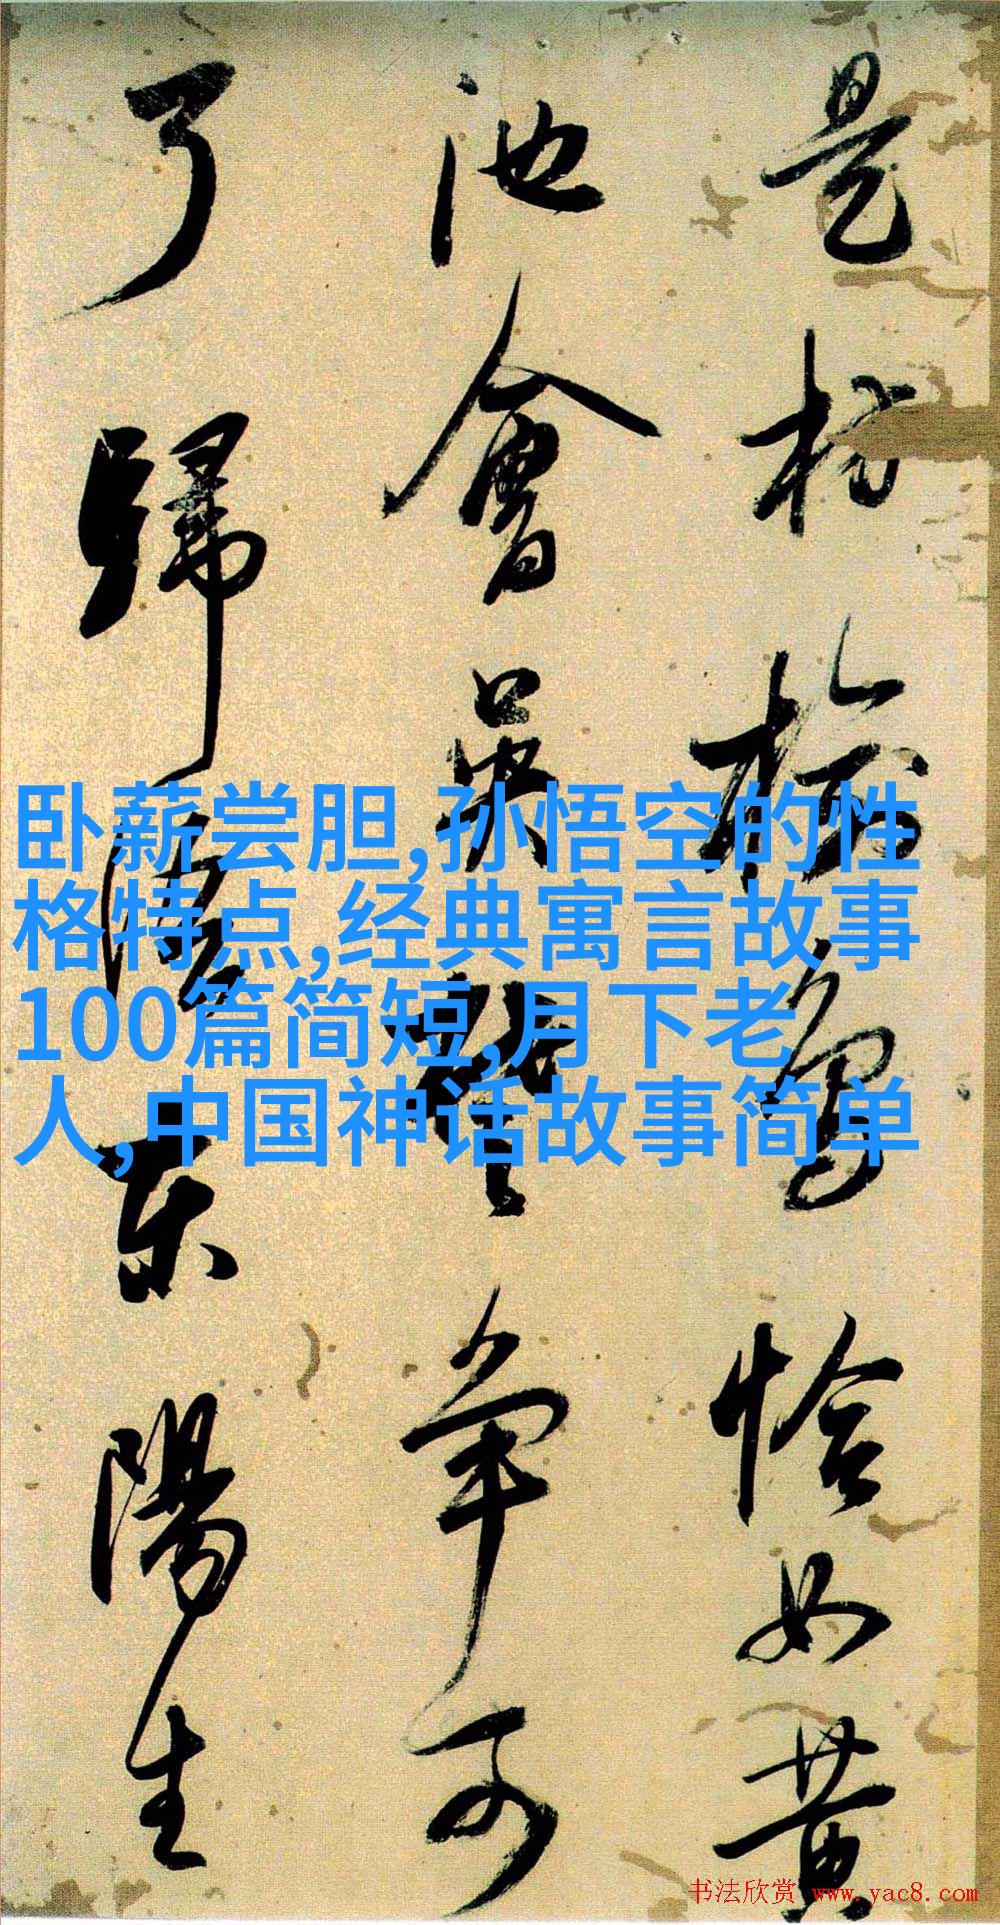 是杉檜多恰如黄
池會吴晉争可
了歸

東陽生
卧薪尝胆,孙悟空的性
格特点,经典寓言故事
100篇简短,月下老
人,中国神话故事简单
书法欣赏 www.yac8.com